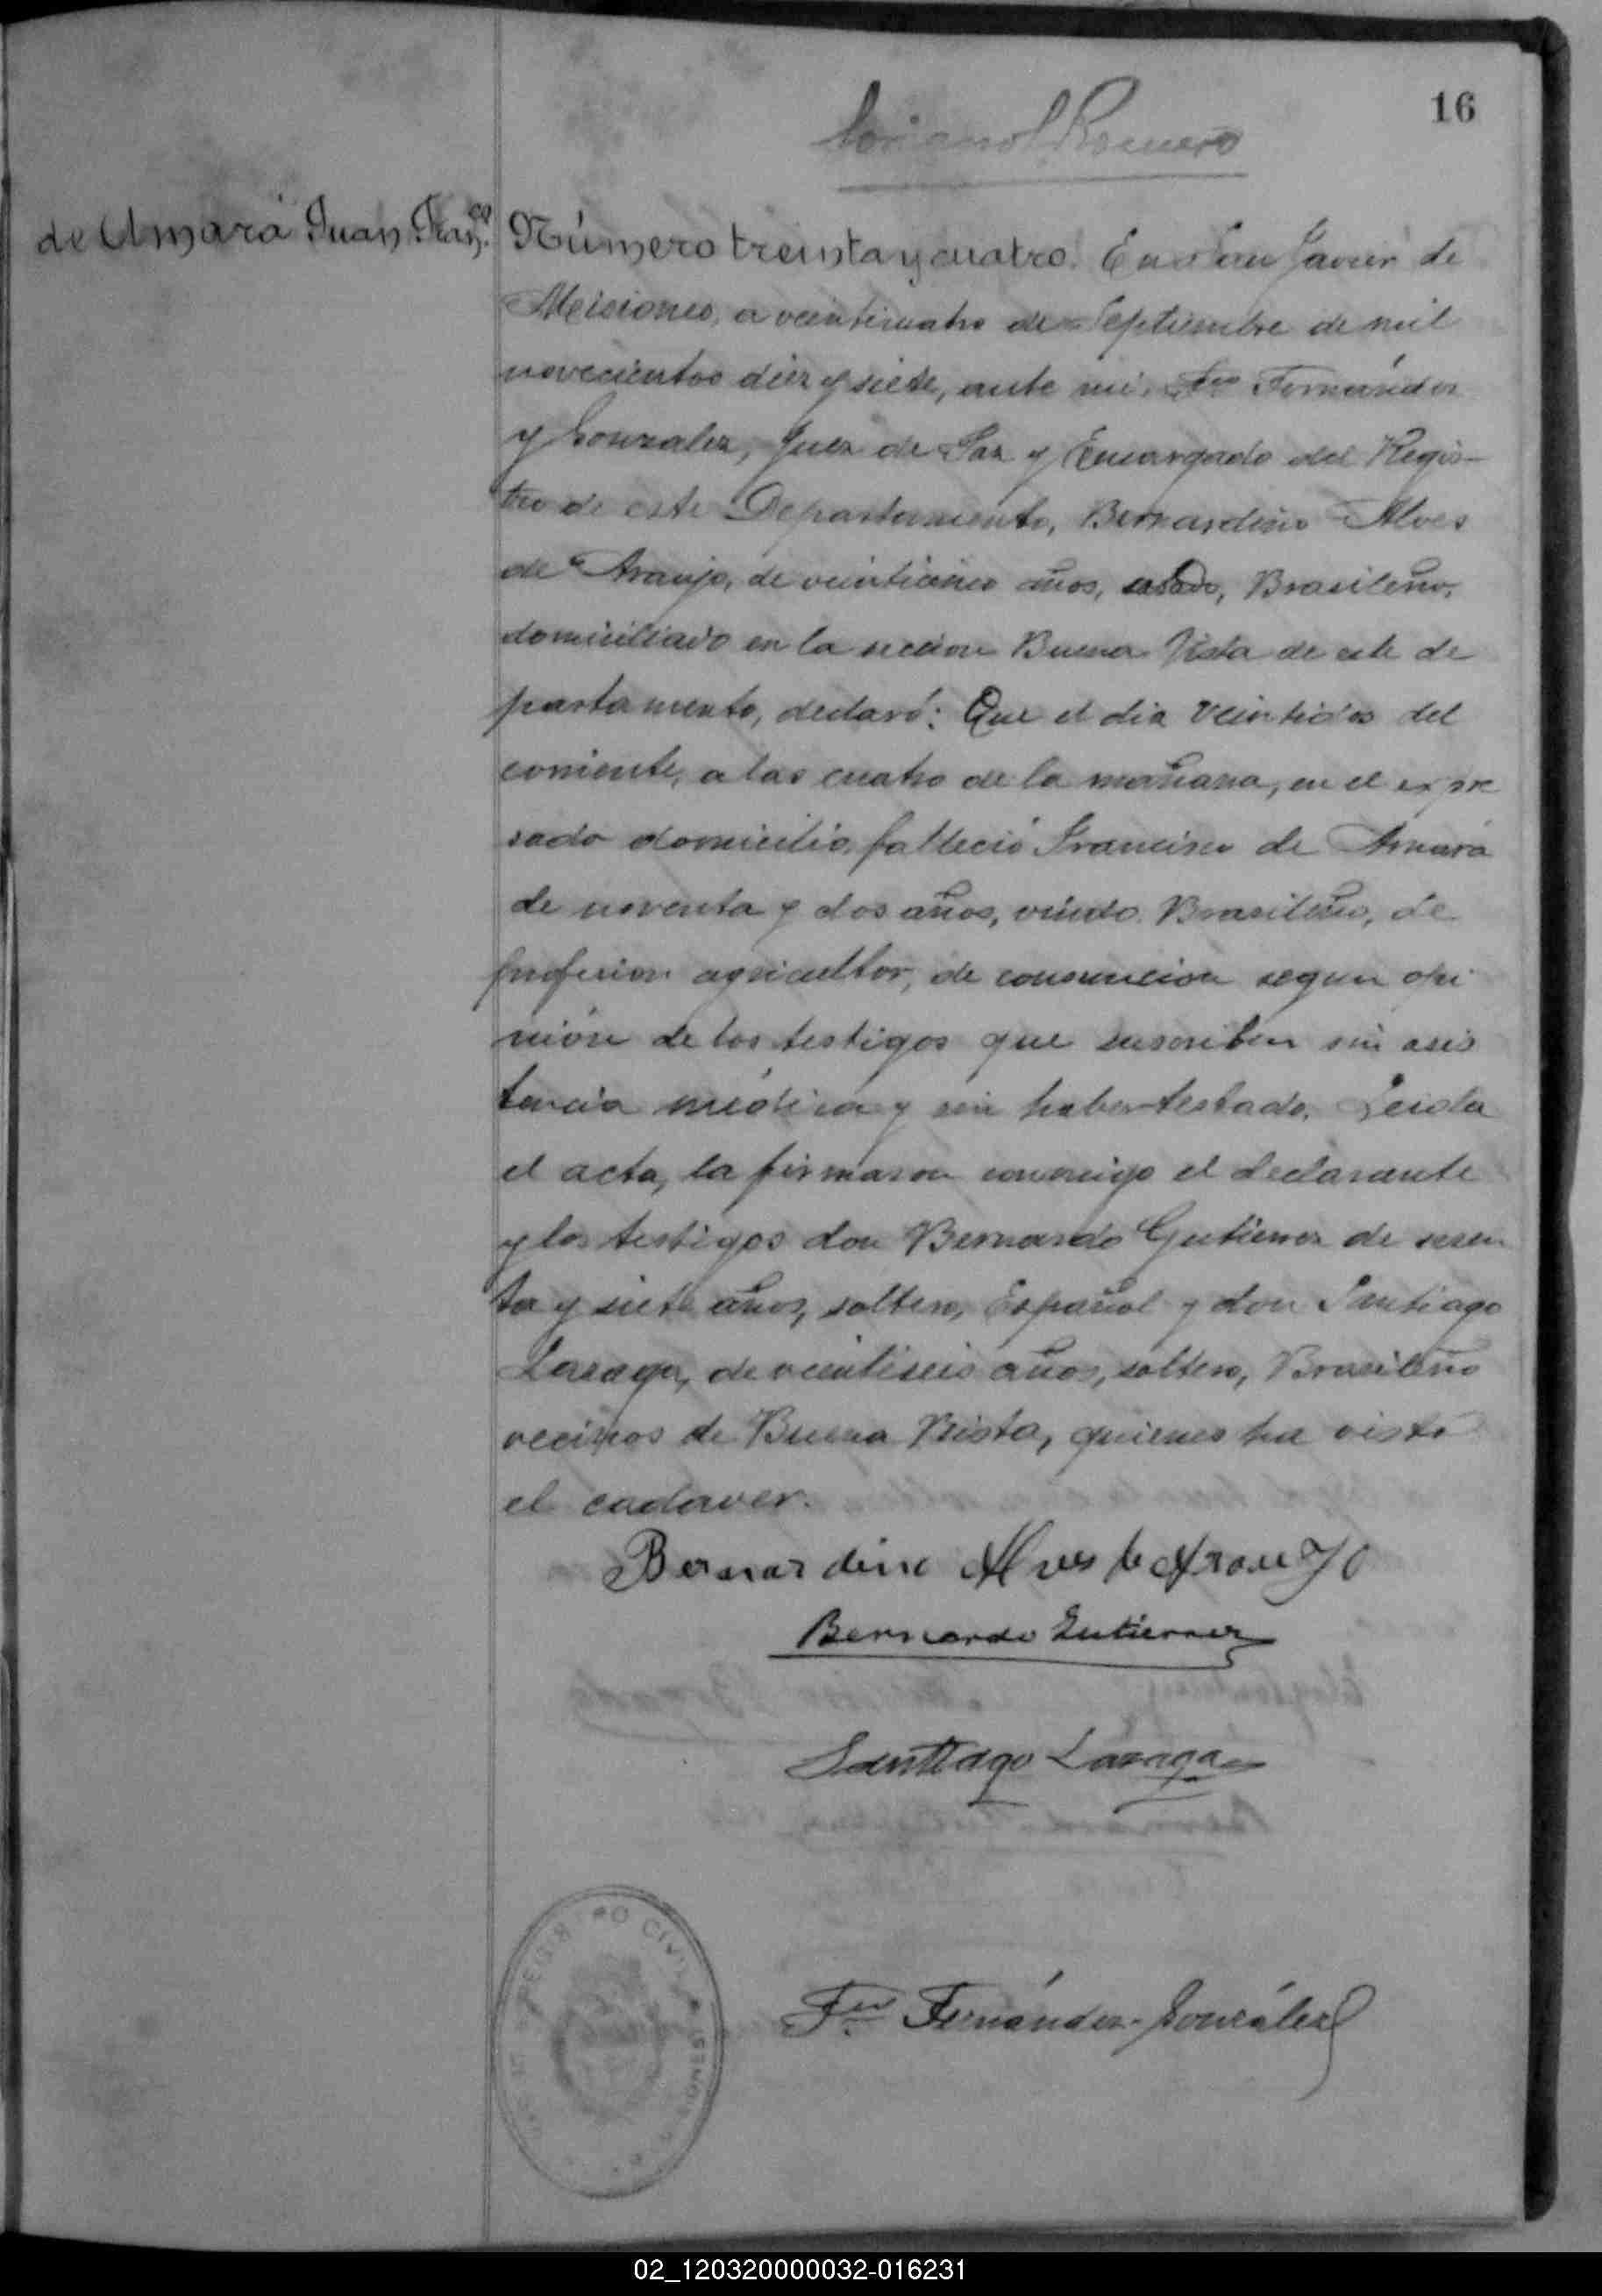 16
Romero
de Amará Juan Franco.
Número treinta y cuatro. En San Javier de
Misiones, a veinticuatro de Septiembre de mil
novecientos diez y siete, ante mi, Fco Fernández
y Gonzalez, Juez de Paz y Encargado del Regis-
tro de este Departamento, Bernardino Alves
de Araujo, de veinticinco años, casado, Brasileño,
domiciliado en la seccion Buena Vista de este de
partamento, declaró: Que el dia veintidos del
corriente, a las cuatro de la mañana, en el expre
sado domicilio, falleció Francisco de Amará
de noventa y dos años, viudo, Brasileño, de
profesion agricultor, de consuncion segun opi
nión de los testigos que suscriben sin asis
tencia médica y sin haber testado. Leida
el acta, la firmaron conmigo el declarante
y los testigos don Bernardo Gutierrez de sesen
ta y siete años, soltero, Español y don Santiago
Lazaga, de veintiseis años, soltero, Brasileño
vecinos de Buena Vista, quienes ha visto
el cadaver.
Bernardino Alves de Araujo
Bernardo Gutierrez
Santiago Lazaga
Fco Fernández González
REGISTRO CIVIL
02_120320000032-016231